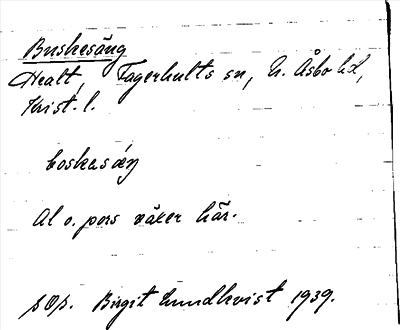 Buskesäng
Healt, Fagerhults sn, N. Åsbo hd,
Krist. l.
boskasäŋ
Al o. pors växer här.
sOp. Birgit Lundkvist 1939.